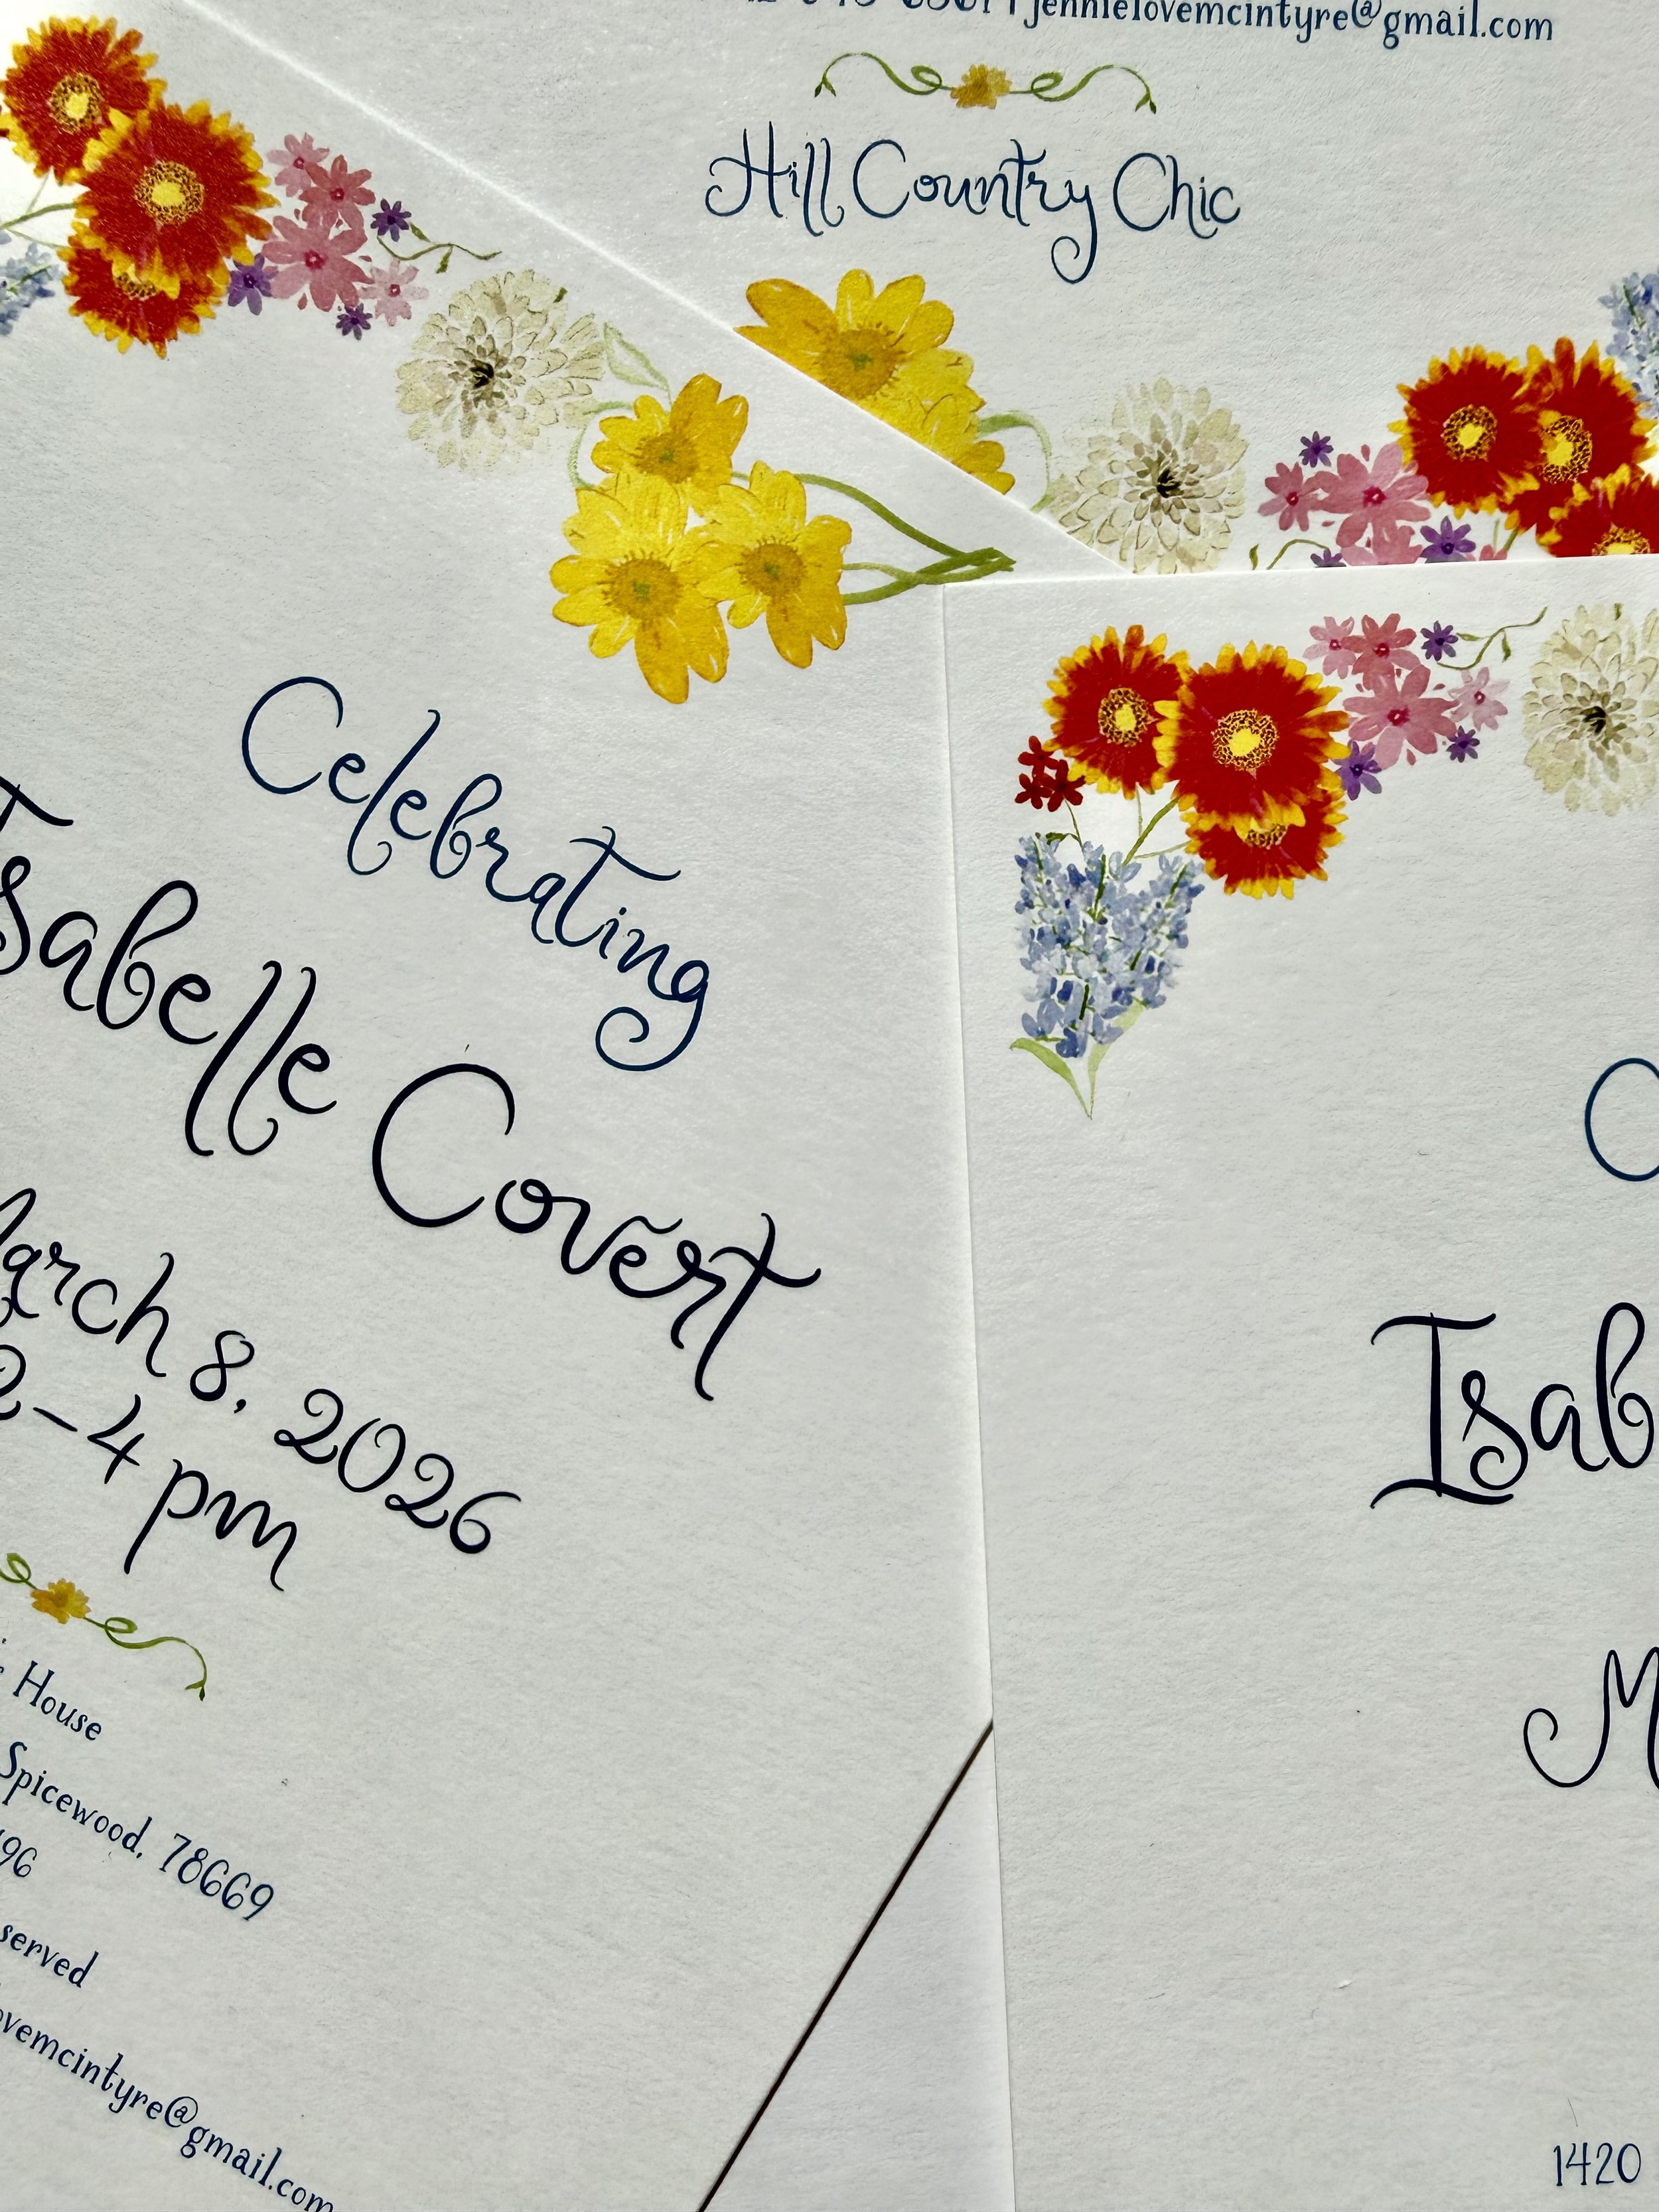 jennielovemcintyre@gmail.com
Hill Country Chic
Celebrating
Isabelle Covert
March 8, 2026
-4 pm
House
Spicewood, 78669
96
served
ovemcintyre@gmail.com
C
Isab
M
1420